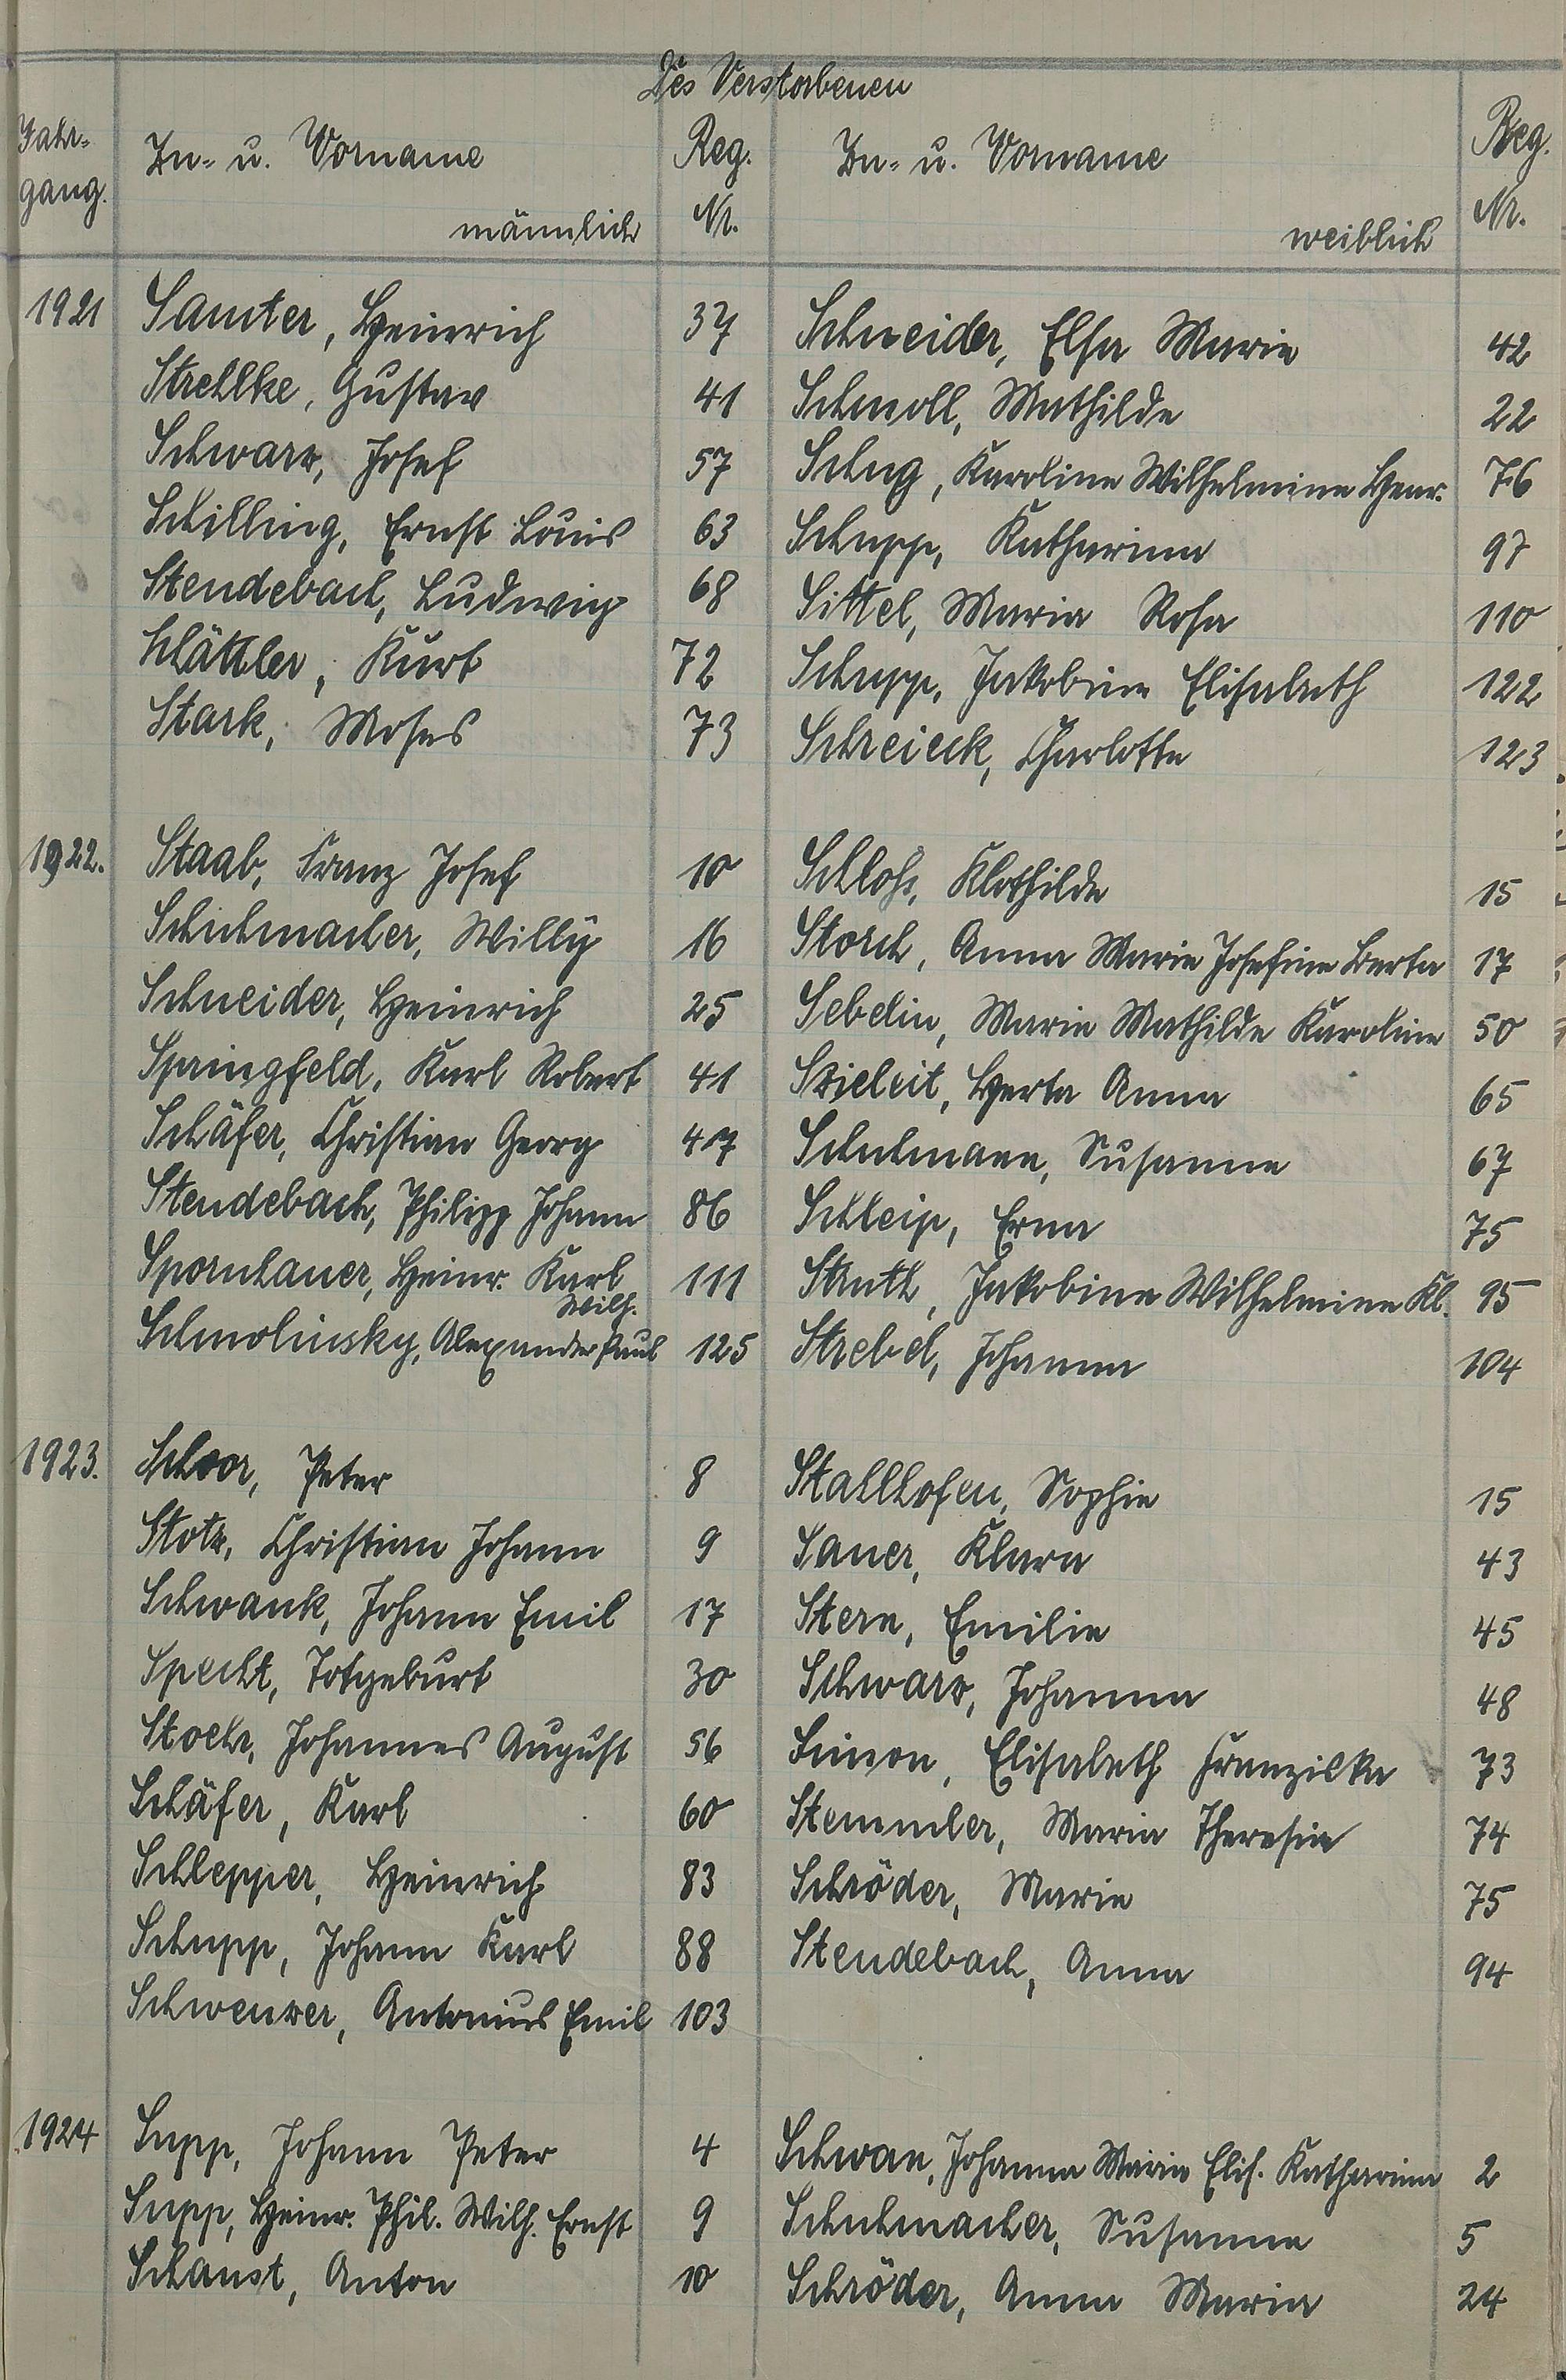 Des Verstorbenen
Jahr-
gang.
Zu- u. Vorname
männlich
Reg.
Nr.
Zu- u. Vorname
weiblich
Reg.
Nr.
1921 Samter, Heinrich 37 Schneider, Elsa Maria 42
Strehlke, Gustav 41 Schmoll, Mathilde 22
Schwarz, Josef 57 Schug, Karoline Wilhelmine Henr. 76
Schilling, Ernst Louis 63 Schupp, Katharina 97
Stendebach, Ludwig 68 Sittel, Maria Rosa 110
Kurt 72 Schupp, Jakobine Elisabeth 122
Stark, Moses 73 Schreieck, Charlotte 123
1922. Staab, Franz Josef 10 Schloß, Klothilde 15
Schuhmacher, Willy 16 Storch, Anna Maria Josefine Berta 17
Schneider, Heinrich 25 Sebelin, Marie Mathilde Karoline 50
Springfeld, Karl Robert 41 Szieleit, Herta Anna 65
Schäfer, Christian Georg 47 Schuhmann, Susanna 67
Stendebach, Philipp Johann 86 Schleip, Erna 75
Spornhauer, Heinr. Karl Wilh. 111 Struth, Jakobine Wilhelmine Kl. 95
Schmolinsky, Alexander Paul 125 Strebel, Johanna 104
1923. Schoor, Peter 8 Stallhofen, Sophie 15
Stotz, Christian Johann 9 Sauer, Klara 43
Schwank, Johann Emil 17 Stern, Emilie 45
Specht, Totgeburt 30 Schwarz, Johanna 48
Stoehr, Johannes August 56 Simon, Elisabeth Franziska 73
Schäfer, Karl 60 Stemmler, Maria Theresia 74
Schlepper, Heinrich 83 Schröder, Marie 75
Schupp, Johann Karl 88 Stendebach, Anna 94
Schwenzer, Antonius Emil 103
1924 Supp, Johann Peter 4 Schwan, Johanna Maria Elis. Katharina 2
Supp, Heinr. Phil. Wilh. Ernst 9 Schuhmacher, Susanna 5
Schaust, Anton 10 Schröder, Anna Maria 24